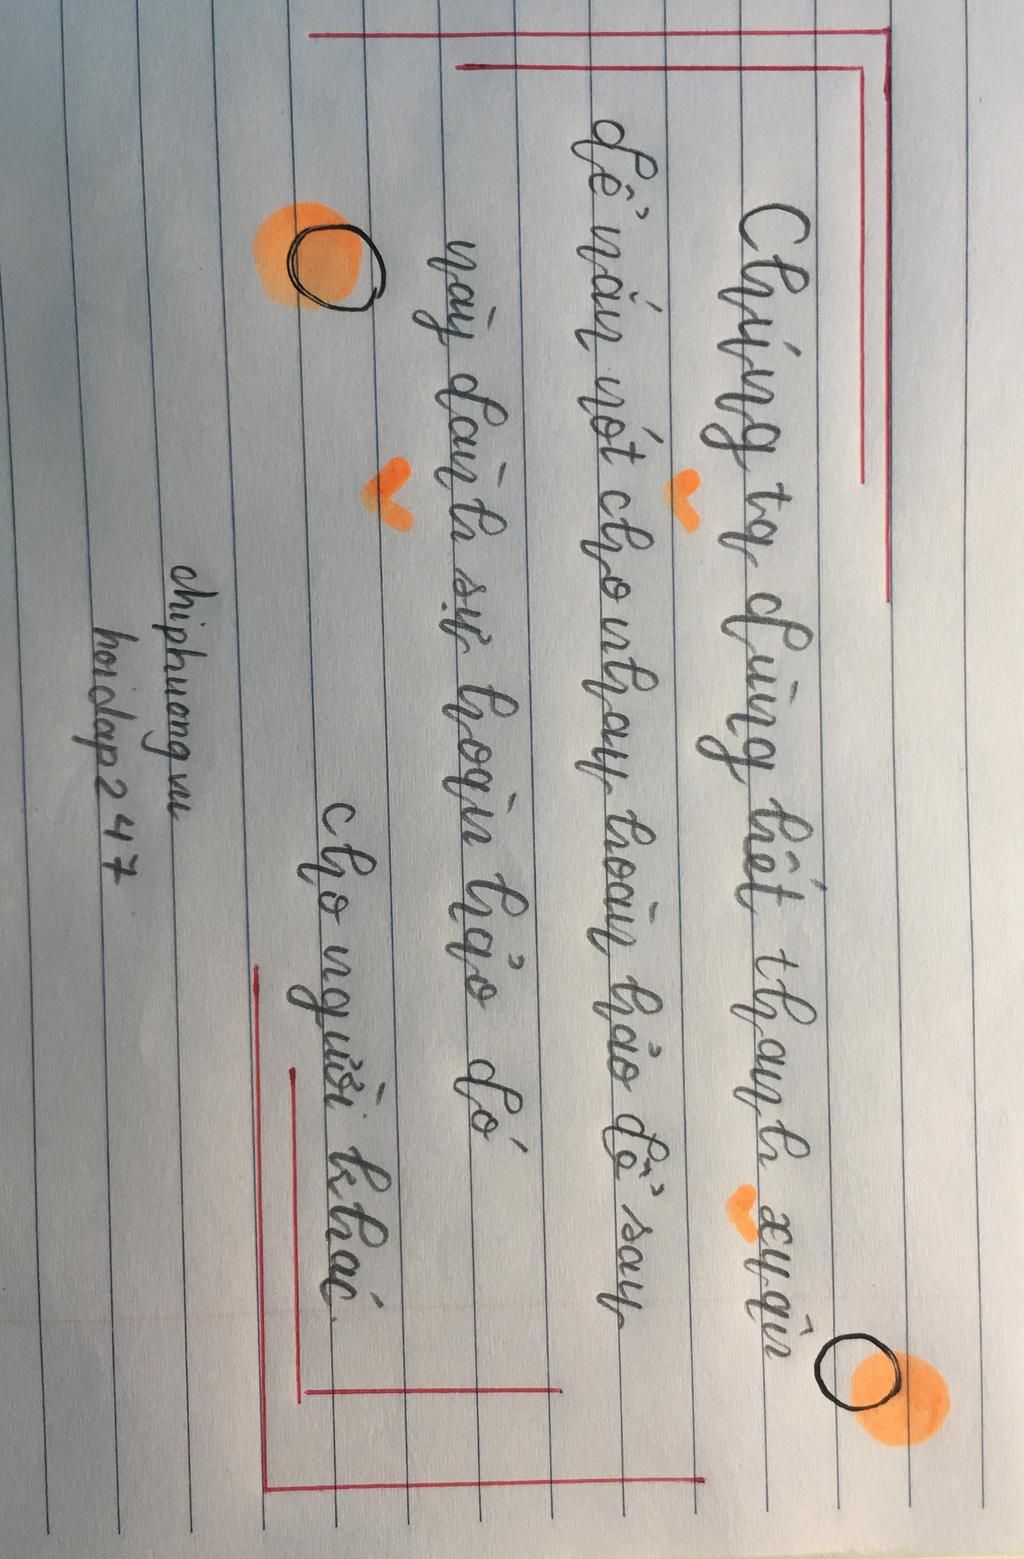 Chúng ta dùng hết thanh xuân
để nắn nót cho nhau hoàn hảo để sau
này dành sự hoàn hảo đó
cho người khác.
chiphuongvu
hoidap247